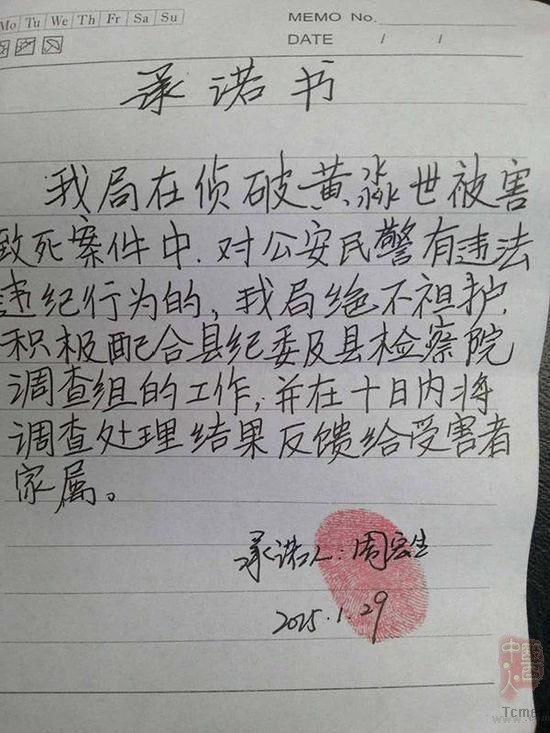 Mo Tu We Th Fr Sa Su
MEMO No.
DATE / /
承诺书
我局在侦破黄淼世被害
致死案件中.对公安民警有违法
违纪行为的,我局绝不袒护.
积极配合县纪委及县检察院
调查组的工作,并在十日内将
调查处理结果反馈给受害者
家属。
承诺人:周宏生
2015.1.29
Tcme